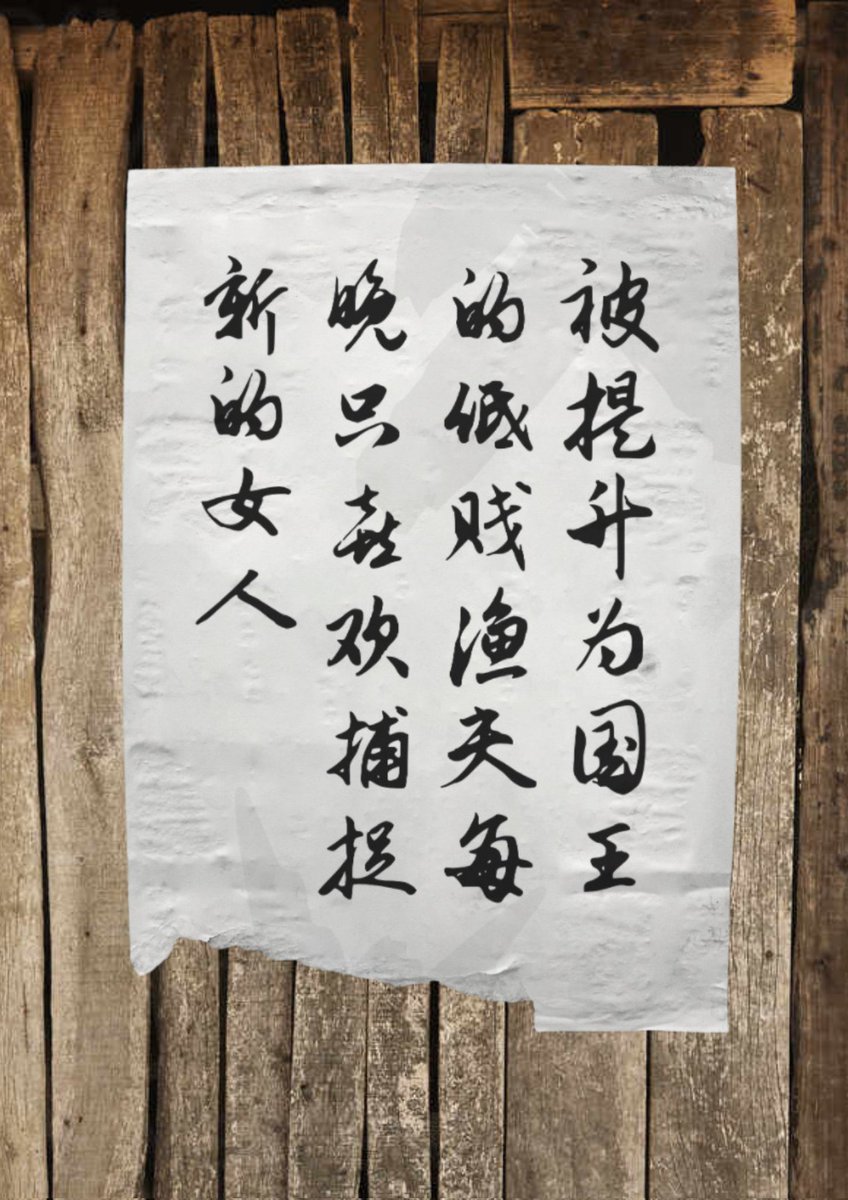 被提升为国王
的低贱渔夫每
晚只喜欢捕捉
新的女人